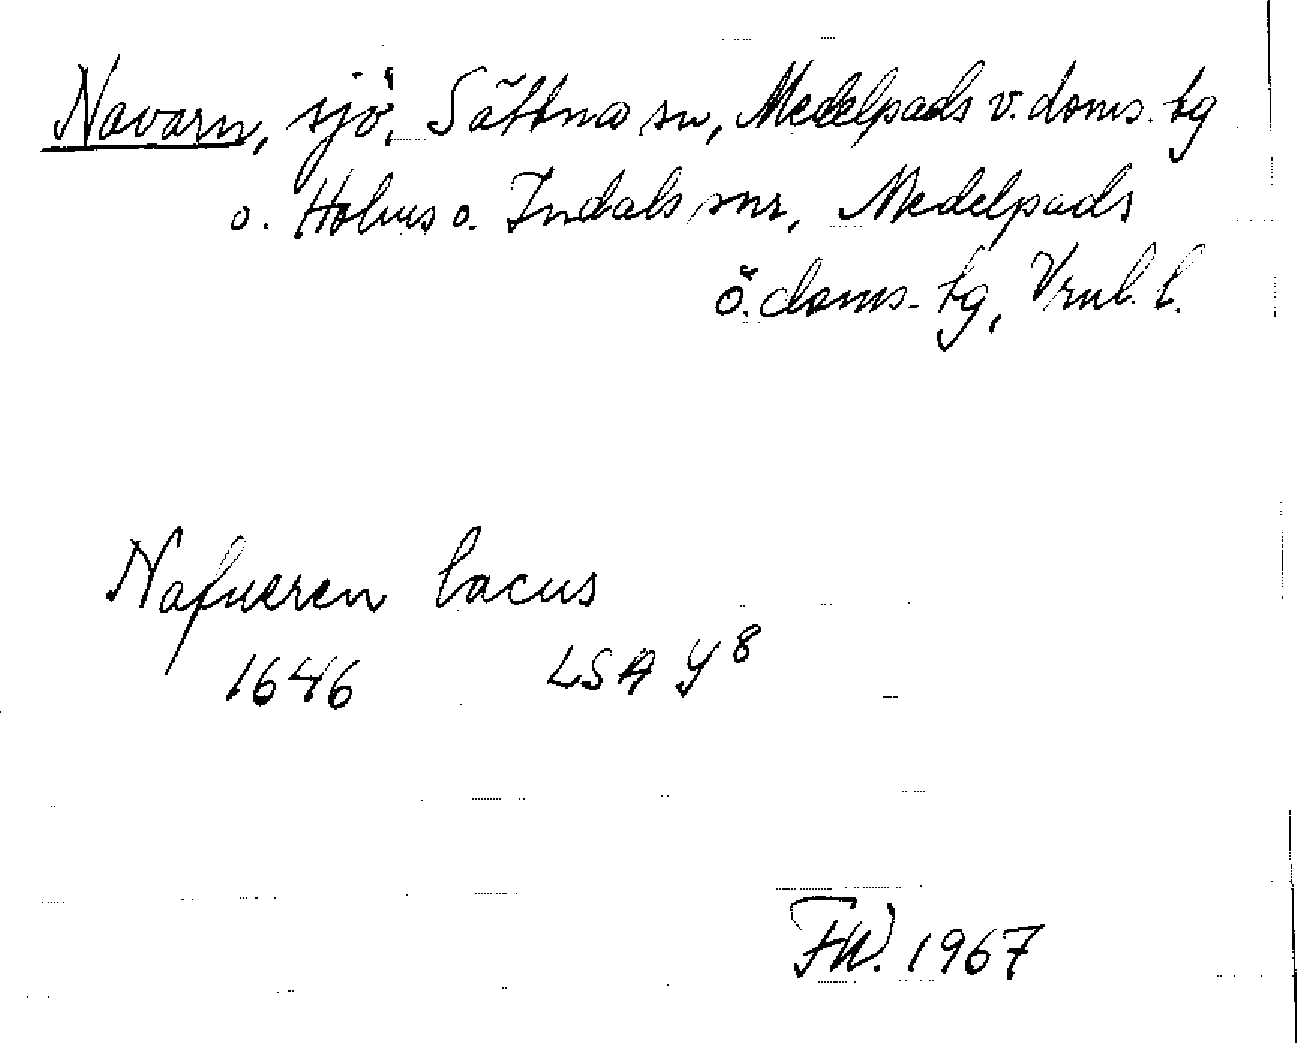 Navarn, sjö, Sättna sn, Medelpads v. doms. tg
o. Holms o. Indals snr, Medelpads
ö. doms. tg, Vrnl. l.
Nafueren lacus
1646 LSA Y 8
FW. 1967